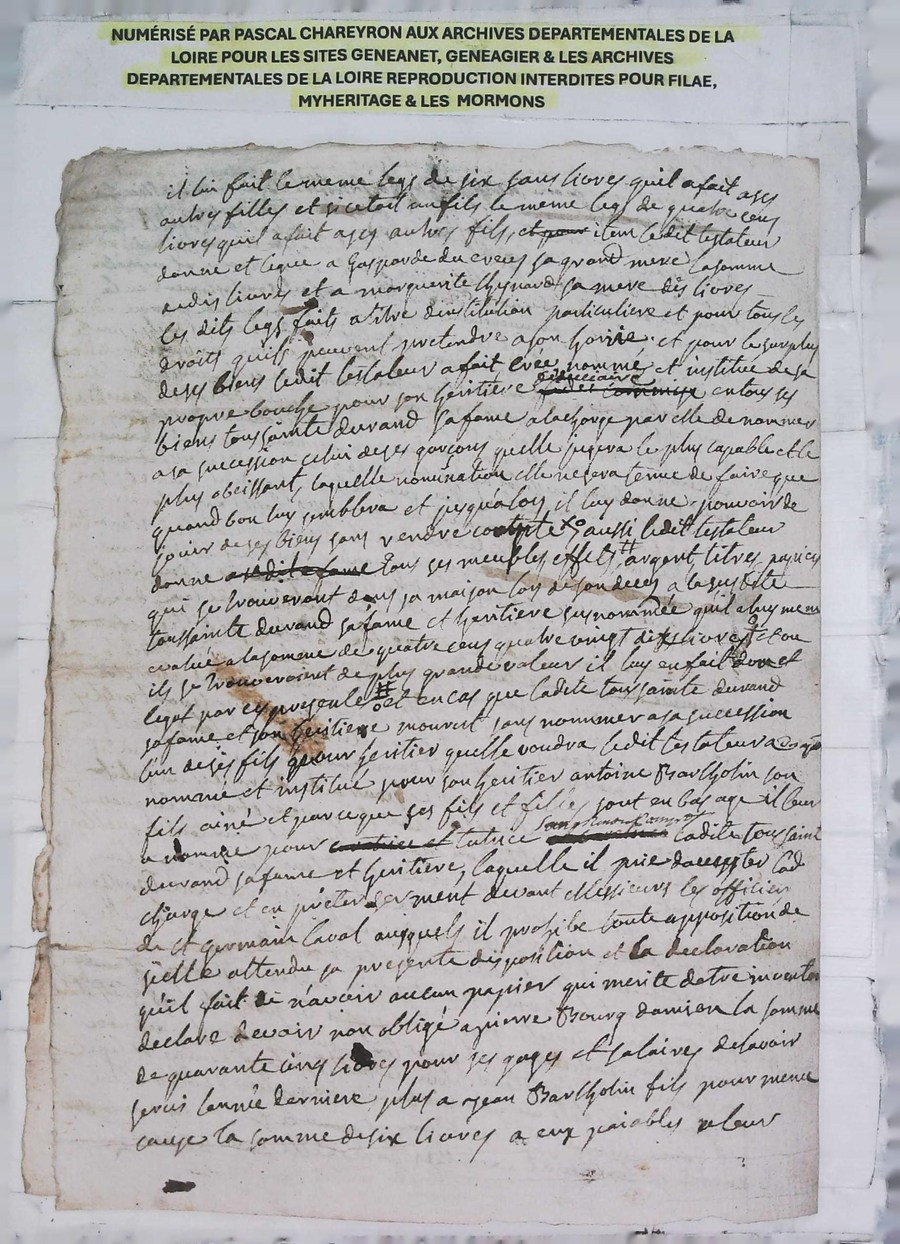 NUMÉRISÉ PAR PASCAL CHAREYRON AUX ARCHIVES DEPARTEMENTALES DE LA
LOIRE POUR LES SITES GENEANET, GENEAGIER & LES ARCHIVES
DEPARTEMENTALES DE LA LOIRE REPRODUCTION INTERDITES POUR FILAE,
MYHERITAGE & LES MORMONS
il lui fait le meme legs de six sans livres quil a fait a ses
autres filles et si cetoit un fils le meme legs de quatre cens
livres quil a fait a ses autres fils, et pour item ledit testateur
donne et legue a gasparde du creux sa grand mere la somme
de dis livres et a marguerite sa mere dès livres
les dits legs faits a titre dinstitution particuliere et pour tous les
droits quils peuvent pretendre a son hoirie et pour le surplus
de ses biens ledit testateur a fait créé nommé et institué de sa
propre bouche pour son heritiere fiduciaire en tous ses
biens toussainte durand sa fame a la charge par elle de nommer
a sa succession celui de ses garçons quelle jugera le plus capable et le
plus obeissant, laquelle nomination elle ne sera tenue de faire que
quand bon luy semblera et jusqualors il luy donne pouvoir de
jouir de ses biens sans rendre compte aussi ledit testateur
donne a sa dite fame tous ses meubles effets, argent, titres, papiers
qui se trouveront dans sa maison lors de son deces a la susdite
toussainte durand sa fame et heritiere susnommée quil a luy meme
evalué a la somme de quatre cens quatre vingt dix livres et ou
ils se trouveroient de plus grande valeur il luy en fait don et
legat par ces presentes et en cas que ladite toussainte durand
sa fame et son heritiere mourut sans nommer a sa succession
lun de ses fils pour heritier quelle voudra ledit testateur a
nommé et institué pour son heritier antoine Bartholin son
fils ainé et parceque ses fils et filles sont en bas age il leur
a nommé pour curatrice et tutrice ladite toussainte
durand sa fame et heritiere, laquelle il prie daccepter lad
charge et en préter serment devant Messieurs les officiers
de St germain laval ausquels il prohibe toute apposition de
scelle attendu sa presente disposition et la declaration
quil fait de navoir aucun papier qui merite detre inventorié
declare devoir non obligé a pierre Bourg damien la somme
de quarante cinq livres pour ses gages et salaires de lavoir
servis lannée derniere plus a jean Bartholin fils pour meme
cause la somme de six livres a eux paiables a leur